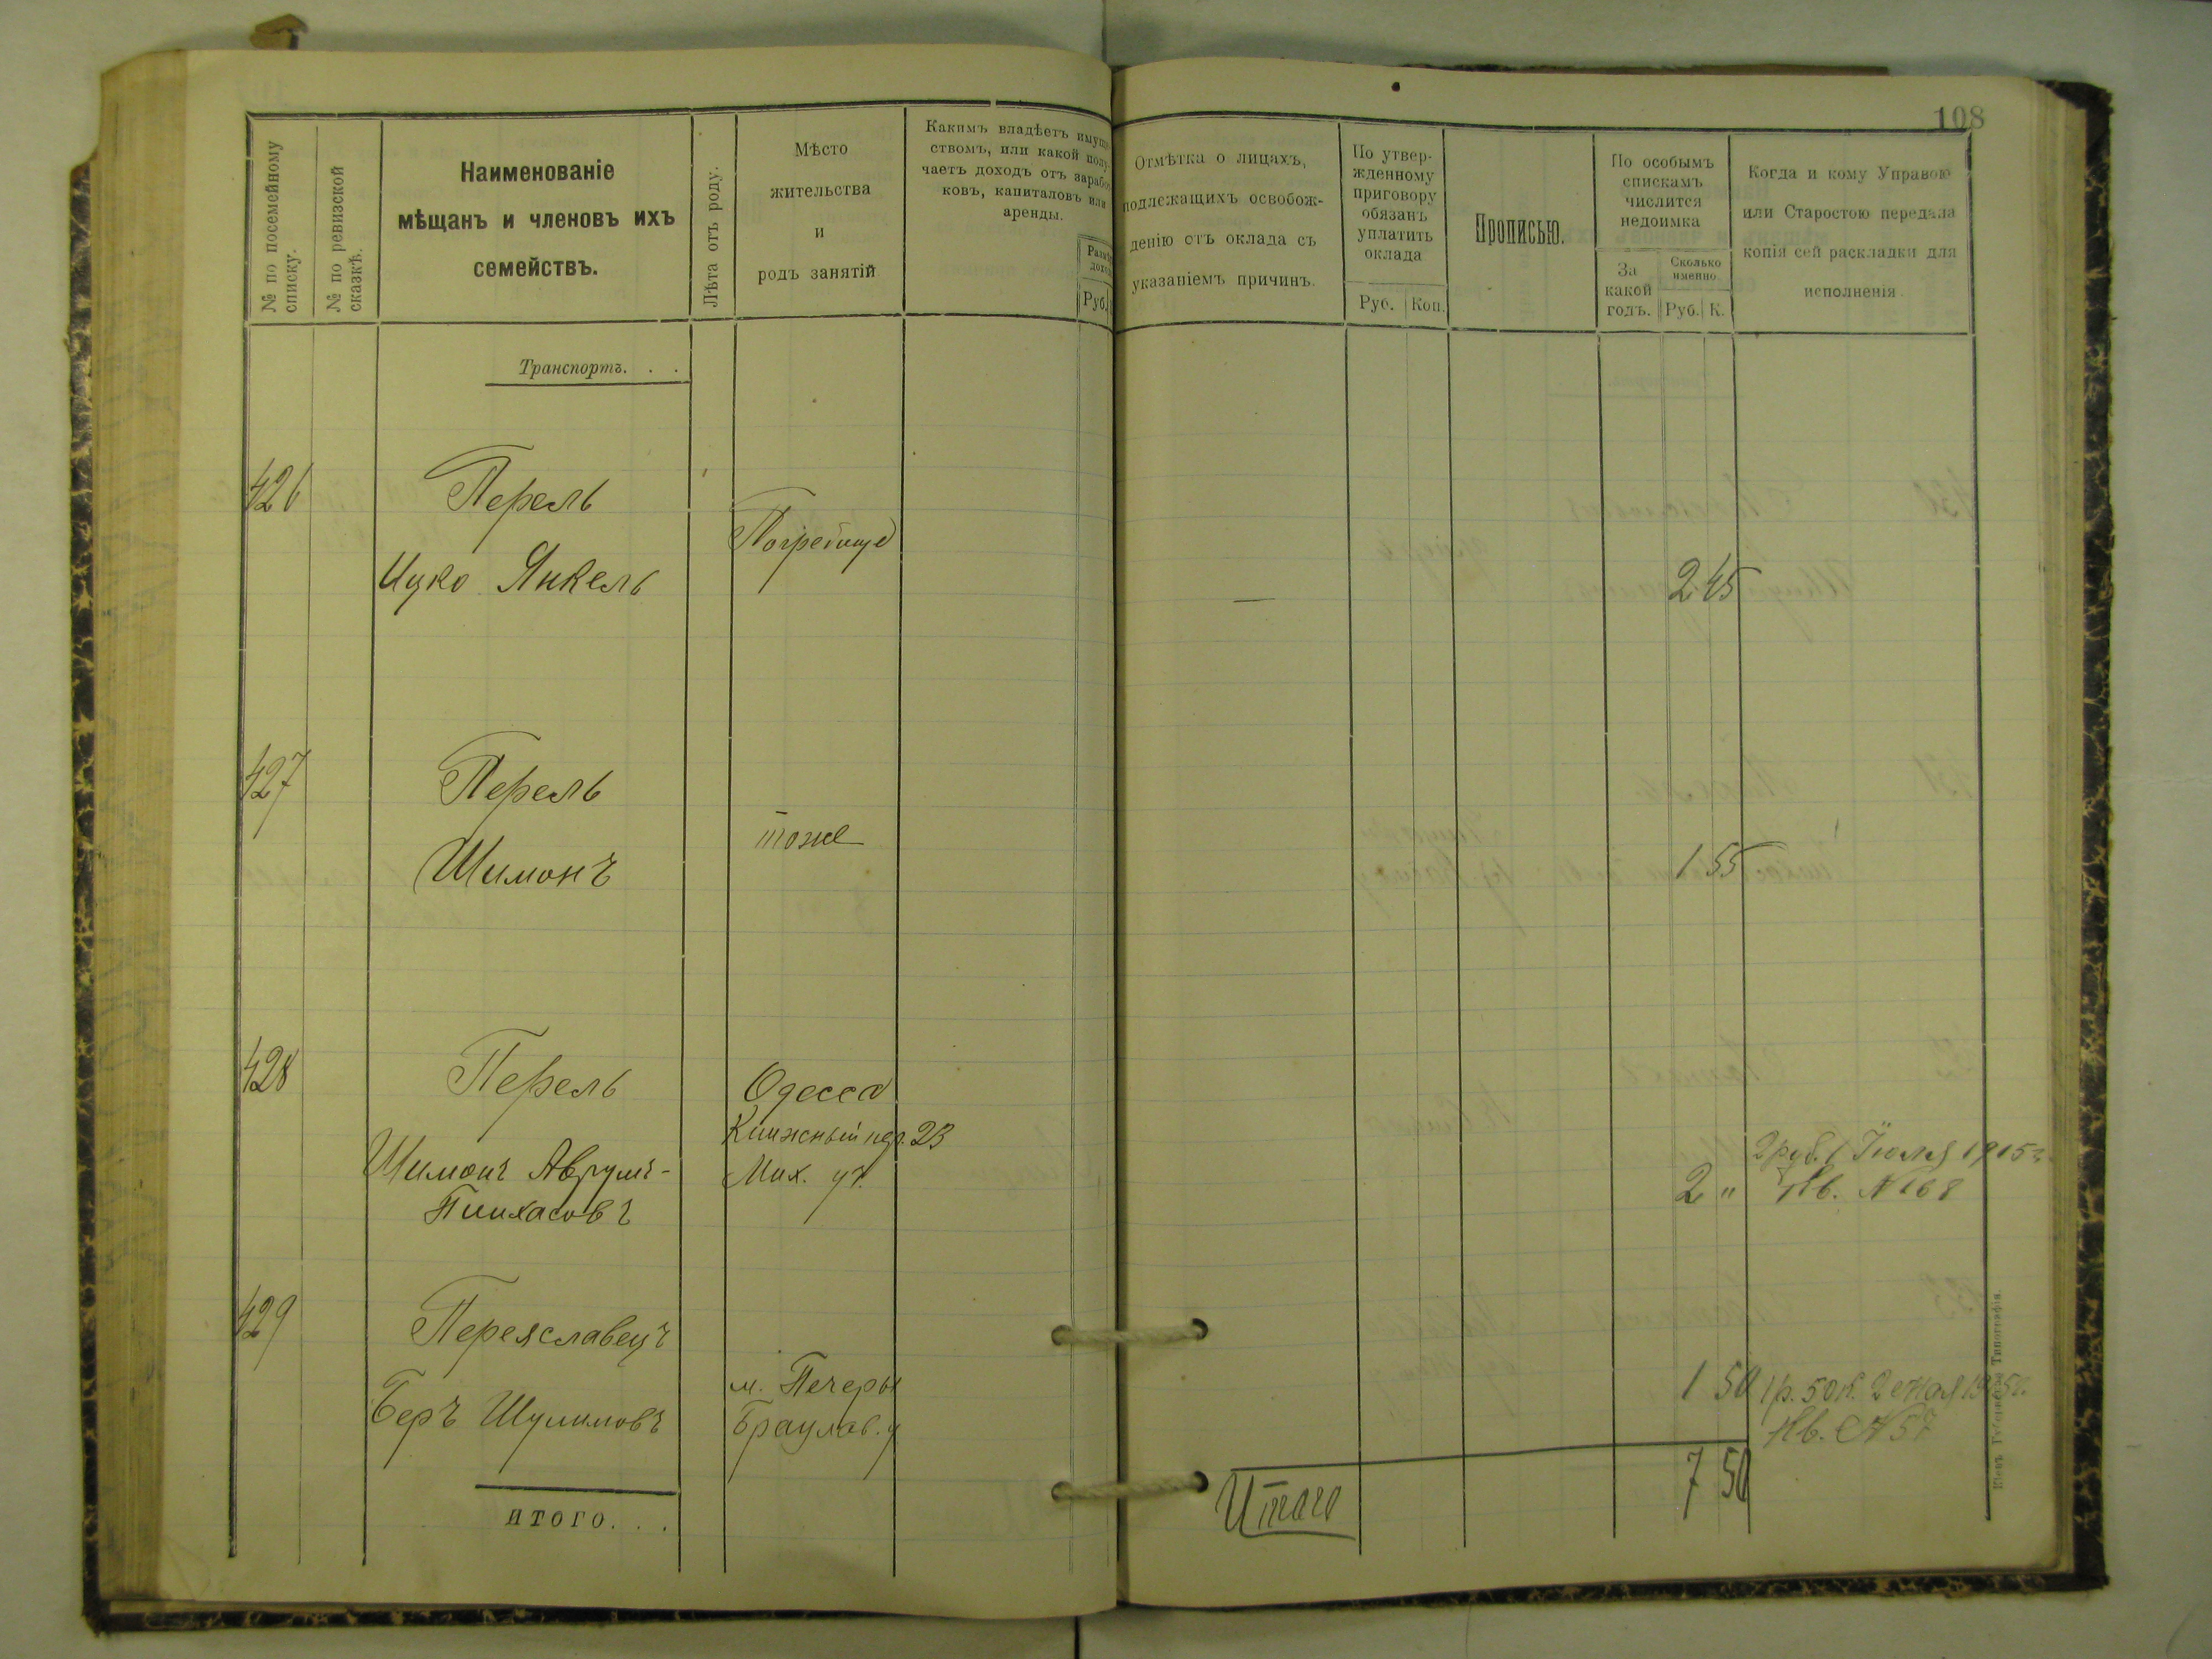 108
№ по посемейному списку.
№ по ревизской сказкѣ.
Наименованіе
мѣщанъ и членовъ ихъ
семействъ.
Лѣта отъ роду.
Мѣсто
жительства
и
родъ занятій
Какимъ владѣетъ имуще-
ствомъ, или какой полу-
чаетъ доходъ отъ заработ-
ковъ, капиталовъ или
аренды.
Руб.
Отмѣтка о лицахъ,
подлежащихъ освобож-
денію отъ оклада съ
указаніемъ причинъ.
По утвер-
жденному
приговору
обязанъ
уплатить
оклада
Руб. Коп.
Прописью.
По особымъ
спискамъ
числится
недоимка
За
какой
годъ.
Сколько
именно
Руб. К.
Когда и кому Управою
или Старостою передала
копія сей раскладки для
исполненія.
Транспортъ. . .
426 Перель
Погребище
Ицко Янкель
— 2 45
427 Перель
тоже
Шимонъ
1 55
428 Перель
Одесса
Книжный пер. 23
Шимонъ Аврумъ-
Мих. уч.
Пинхасовъ
2 "
2 руб. 1 Іюля 1915 г.
Кв. № 168
429 Переяславецъ
м. Печеры
Беръ Шулимовъ
Брацлав. у
1 50
1 р. 50 к. 2 1915 г.
Кв. № 57
итого. . .
Итого 7 50
Кіевъ Типографія.